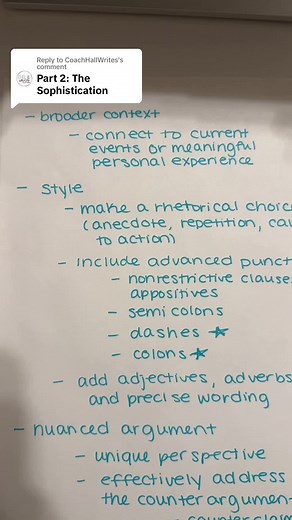 Reply to CoachHallWrites's
comment
Part 2: The
Sophistication
- broader context
- connect to current
events or meaningful
personal experience
- style
- make a rhetorical choic
(anecdote, repetition, ca
to action)
- include advanced punct
- nonrestrictive clause
appositives
- semi colons
- dashes ★
- colons ★
- add adjectives, adverbs
and precise wording
- nuanced argument
- unique perspective
- effectively address
the counterargumen
- counterclaim